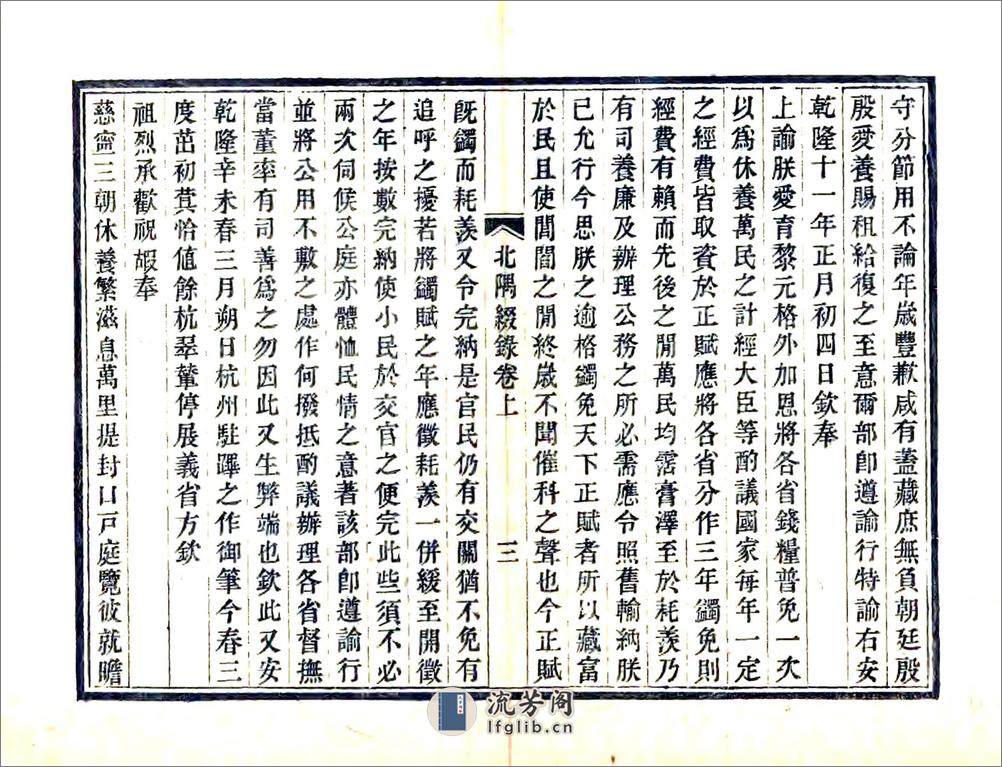 守分節用不論年歲豐歉咸有蓋藏庶無負朝廷殷
殷愛養賜租給復之至意爾部卽遵諭行特諭右安
乾隆十一年正月初四日欽奉
上諭朕愛育黎元格外加恩將各省錢糧普免一次
以爲休養萬民之計經大臣等酌議國家每年一定
之經費皆取資於正賦應將各省分作三年蠲免則
經費有賴而先後之閒萬民均霑膏澤至於耗羨乃
有司養廉及辦理公務之所必需應令照舊輸納朕
已允行今思朕之逾格蠲免天下正賦者所以藏富
於民且使閭閻之閒終歲不聞催科之聲也今正賦
北隅綴錄卷上
三
旣蠲而耗羨又令完納是官民仍有交關猶不免有
追呼之擾若將蠲賦之年應徵耗羨一併緩至開徵
之年按數完納使小民於交官之便完此些須不必
兩次伺候公庭亦體恤民情之意著該部卽遵諭行
並將公用不敷之處作何撥抵酌議辦理各省督撫
當董率有司善爲之勿因此又生弊端也欽此又安
乾隆辛未春三月朔日杭州駐蹕之作御筆今春三
度茁初蓂恰値餘杭翠輦停展義省方欽
祖烈承歡祝嘏奉
慈寧三朝休養繁滋息萬里提封口戸庭覽彼就瞻
流芳阁
lfglib.cn